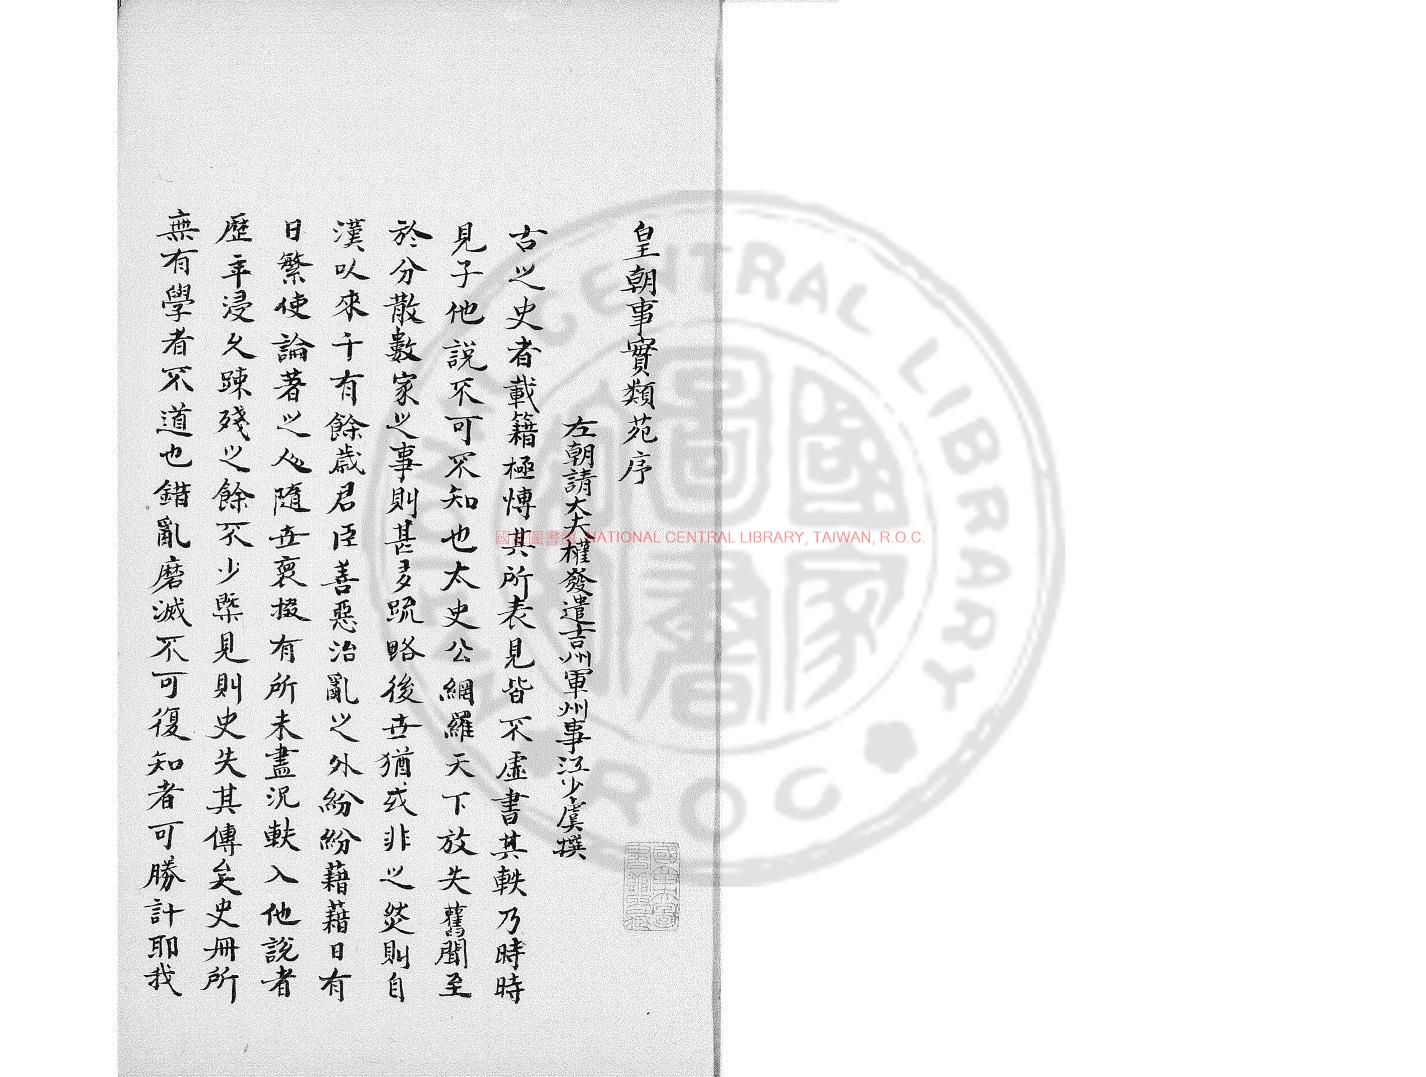 皇朝事實類苑序
左朝請大夫權發遣吉州軍州事江少虞撰
古之史者載籍極博其所表見皆不虛書其軼乃時時
見于他說不可不知也太史公網羅天下放失舊聞至
於分散數家之事則甚多疏略後世猶或非之然則自
漢以來千有餘歲君臣善惡治亂之外紛紛藉藉日有
日繁使論著之人隨世裒掇有所未盡況軼入他說者
歷年浸久踈殘之餘不少槩見則史失其傳矣史冊所
無有學者不道也錯亂磨滅不可復知者可勝計耶我
國家圖書館 NATIONAL CENTRAL LIBRARY, TAIWAN, R.O.C.
NATIONAL CENTRAL LIBRARY
ROC
國家圖書